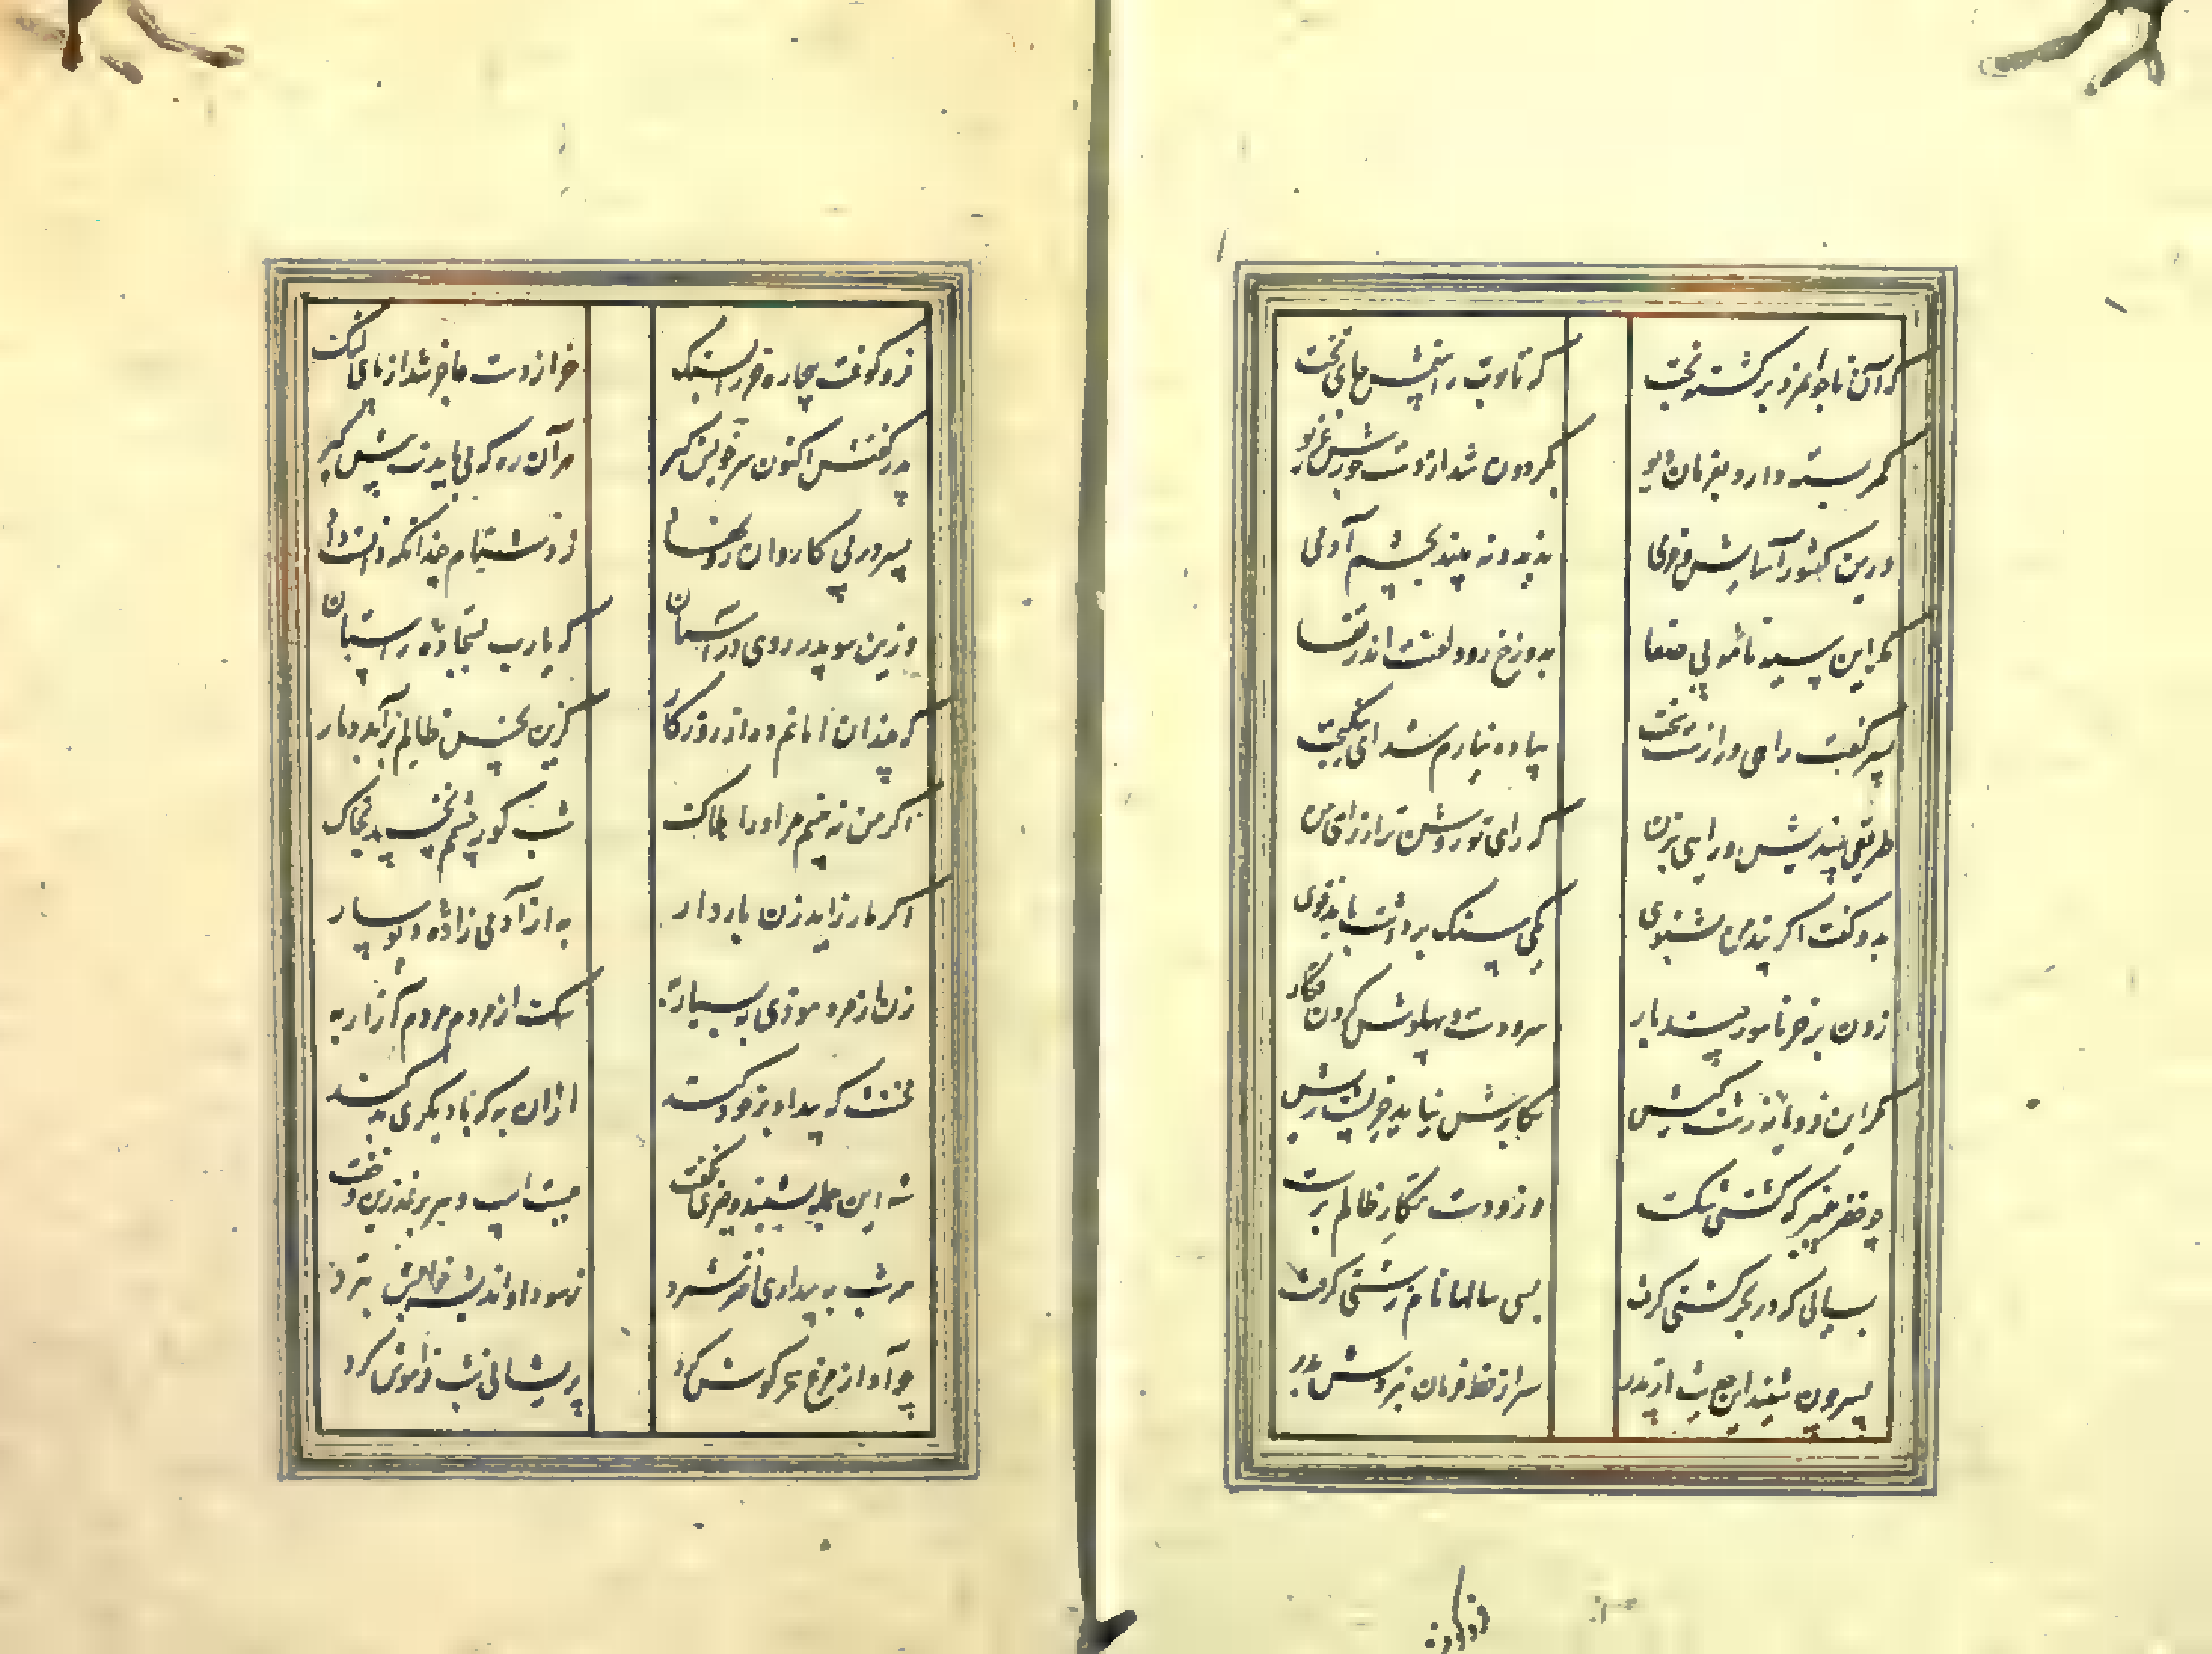 که آن ناجوانمرد برگشته بخت
که تابوت بینمش جای تخت
کمر بسته دارد بفرمان دیو
بگردون شد از دست جورش غریو
درین کشور آسایش و خرمی
ندید و نه بیند بچشم آدمی
مگر این سیه نامه بی صفا
بدوزخ رود لعنت اندر قفا
پسر گفت راهی درازست و سخت
پیاده نیارم شد ای نیکبخت
طریقی بیندیش و رایی بزن
که رای تو روشن تر از رای من
بدو گفت اگر پند من بشنوی
یکی سنک برداشت باید قوی
زدن بر خر نامور چند بار
سر و دست و پهلوش کردن فکار
مگر این فرومایه زشت کیش
بکارش نیاید خر پشت ریش
چو خضر پیمبر که کشتی شکست
وزو دست جبار ظالم ببست
بسالی که در بحر کشتی گرفت
بسی سالها نام زشتی گرفت
پسر چون شنید این حدیث از پدر
سر از خط فرمان نبردش بدر
فرو کوفت
فرو کوفت بیچاره خر را بسنک
خر از دست عاجز شد از پای لنک
پدر گفتش اکنون سر خویش گیر
هر آن ره که می بایدت پیش گیر
پسر در پی کاروان اوفتاد
ز دشنام چندانکه دانست داد
وزین سو پدر روی در آستان
که یارب بسجاده راستان
که چندان امانم ده از روزگار
کزین نحس ظالم برآید دمار
اگر من نه بینم مر او را هلاک
شب گور چشمم نخسپد بخاک
اگر مار زاید زن باردار
به از آدمی زاده دیوسار
زن از مرد موذی به بسیار به
سک از مردم مردم آزار به
مخنث که بیداد بر خود کند
ازان به که با دیگری بد کند
شه این جمله بشنید و چیزی نگفت
ببست اسپ و سر بر نمدزین بخفت
همه شب به بیداری اختر شمرد
ز سودا و اندیشه خوابش نبرد
چو آواز مرغ سحر گوش کرد
پریشانی شب فراموش کرد